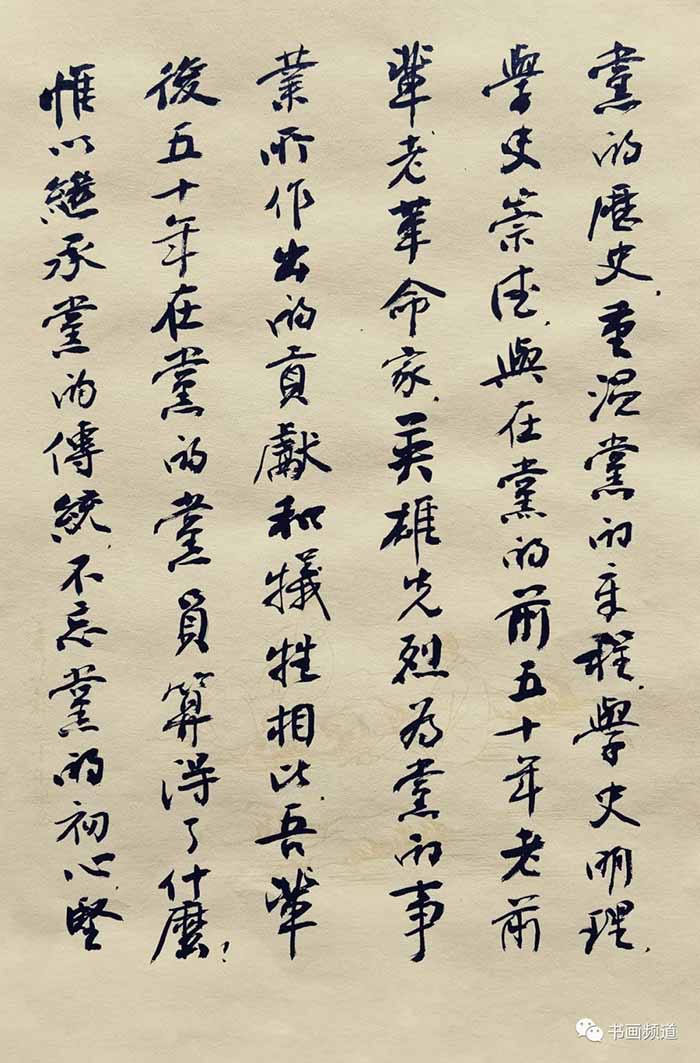 黨的歷史，重溫黨的章程，學史明理，
學史崇德，與在黨的前五十年老前
輩老革命家，英雄先烈為黨的事
業所作出的貢獻和犧牲相比，吾輩
後五十年在黨的黨員算得了什麼？
惟以繼承黨的傳統，不忘黨的初心，堅
书画频道